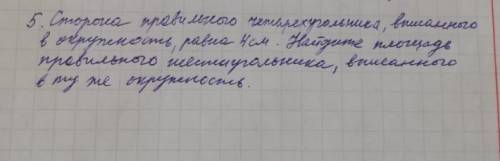 5. Сторона правильного четырехугольника, вписанного
в окружность, равна 4см. Найдите площадь
правильного шестиугольника, вписанного
в ту же окружность.